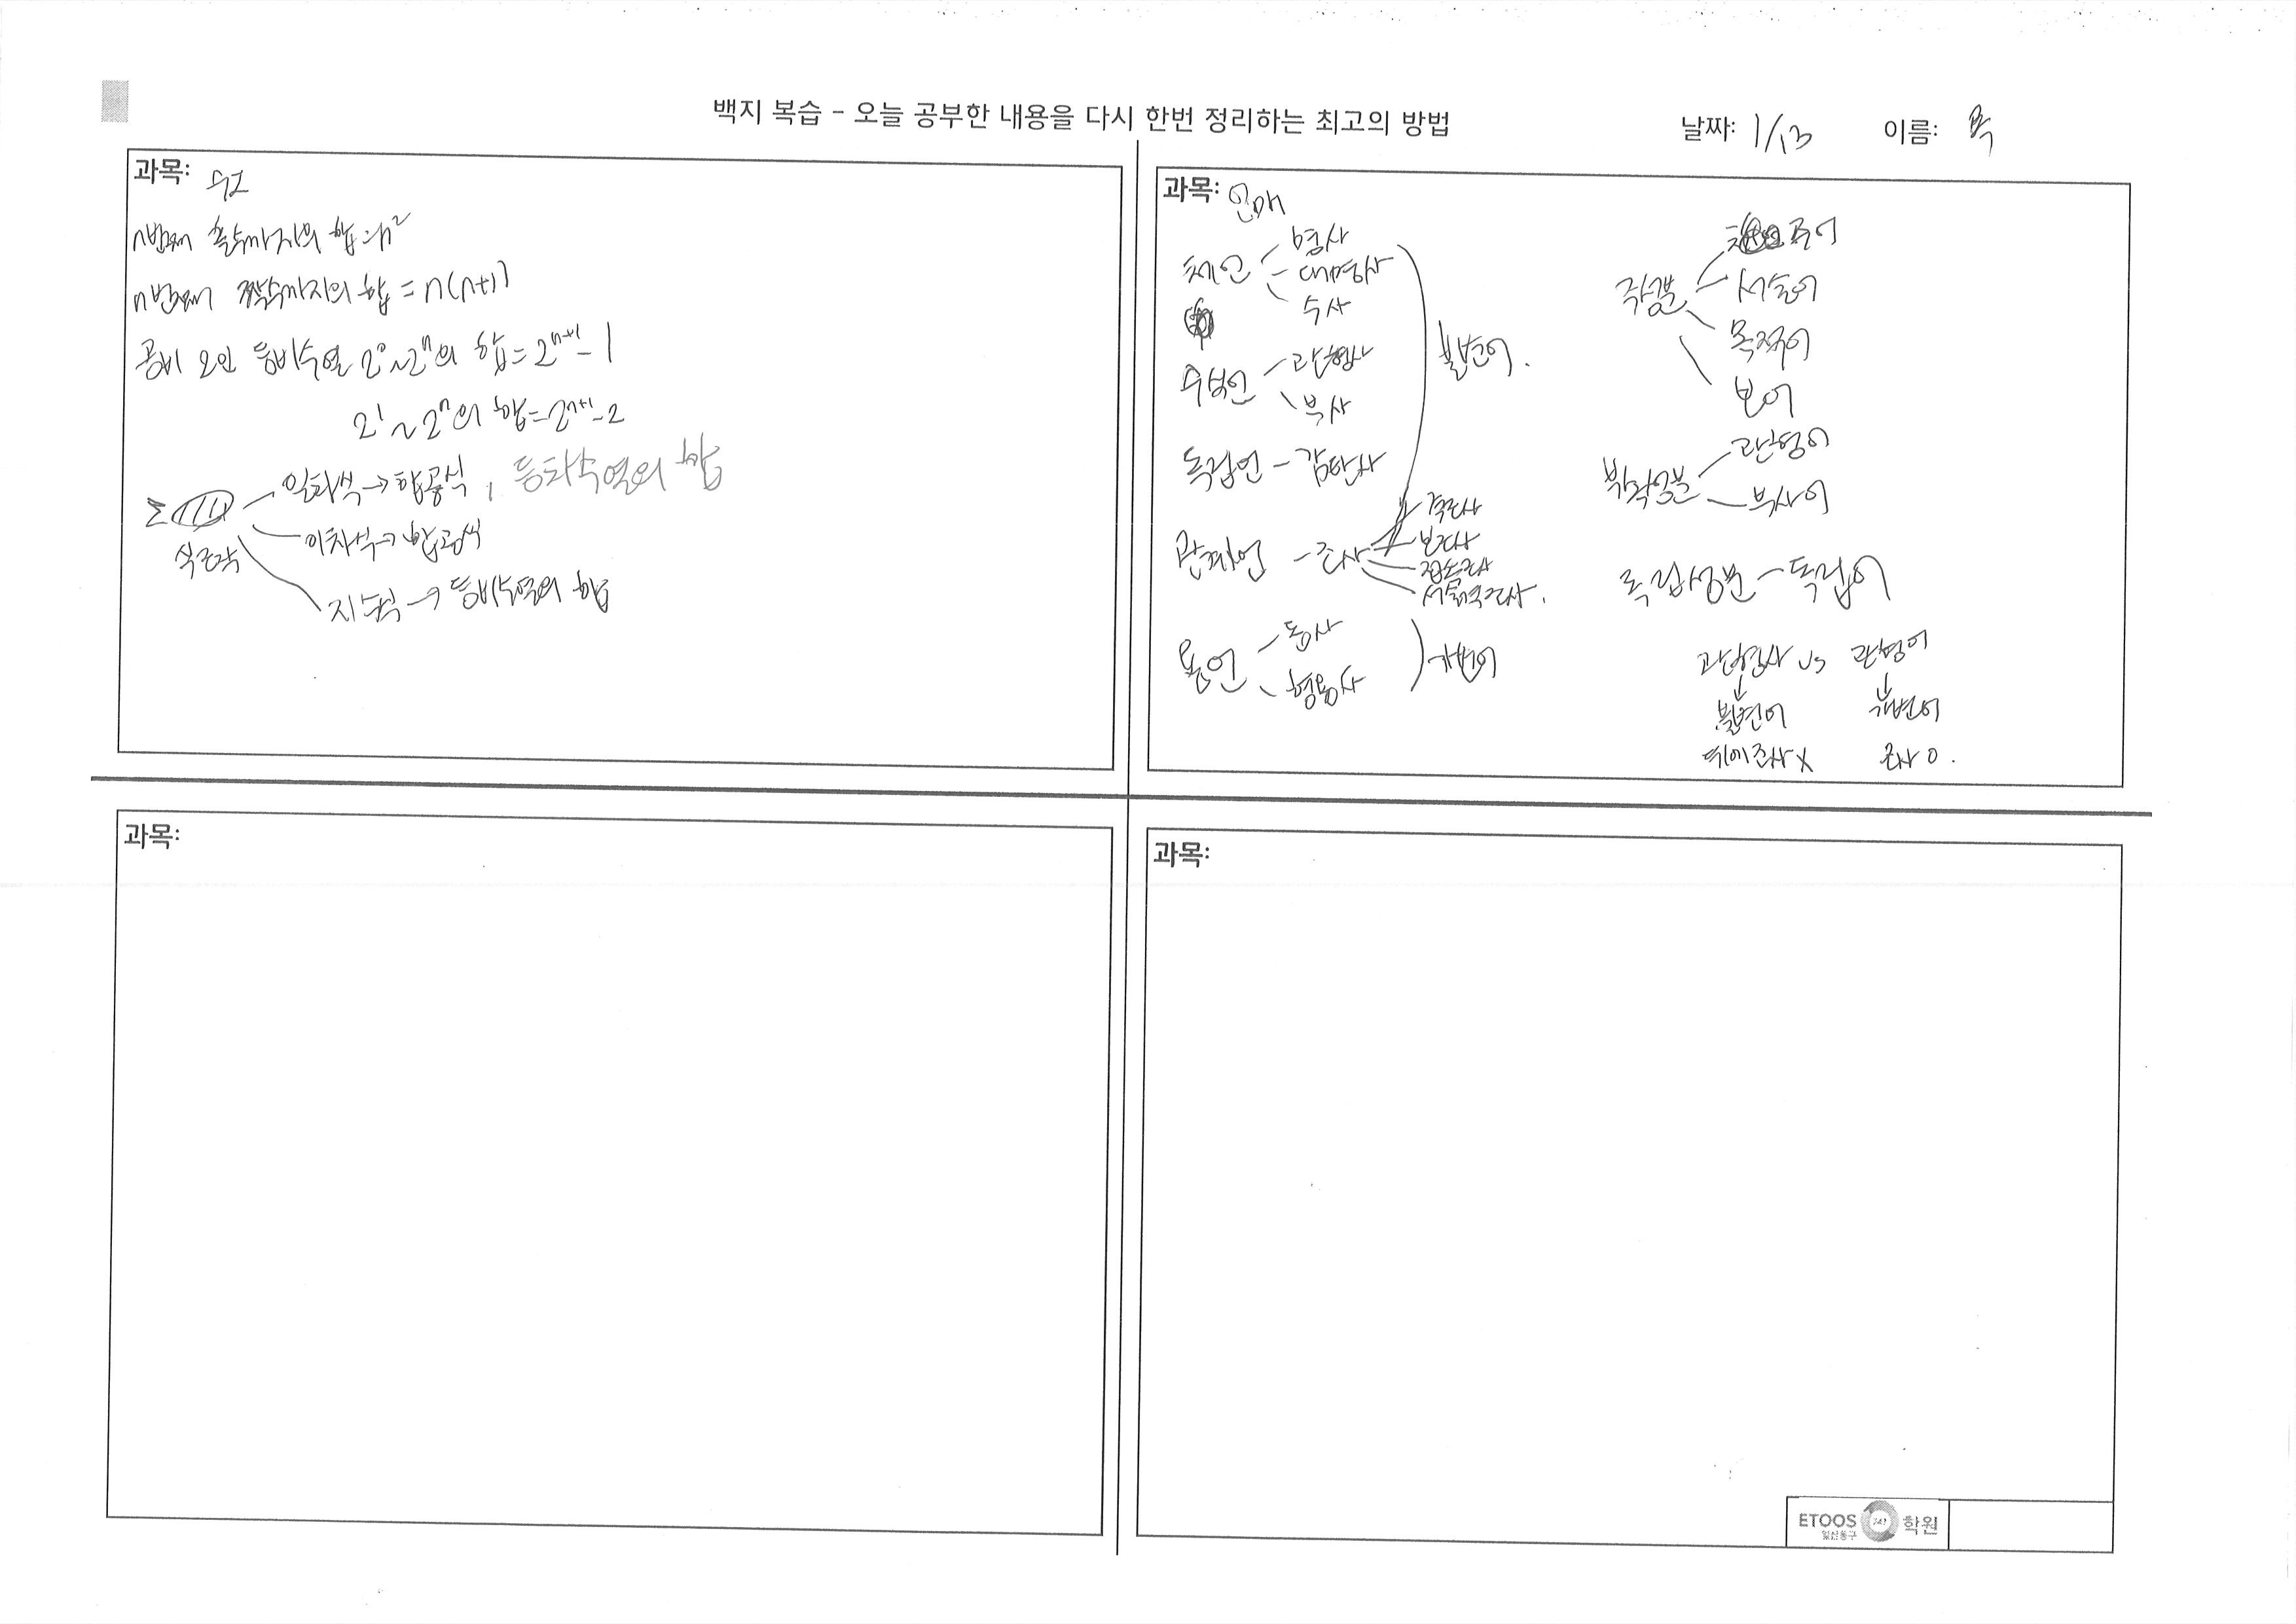 백지 복습 - 오늘 공부한 내용을 다시 한번 정리하는 최고의 방법
날짜: 1/13 이름:
과목: 수I
n번째 홀수까지의 합 = n²
n번째 짝수까지의 합 = n(n+1)
공비 2인 등비수열 2⁰~2ⁿ의 합 = 2ⁿ⁺¹-1
2¹~2ⁿ의 합 = 2ⁿ⁺¹-2
Σ
일차식 → 합공식, 등차수열의 합
이차식 → 합공식
지수식 → 등비수열의 합
과목: 언매
체언 - 명사
- 대명사
수사
수식언 - 관형사
부사
불변어.
독립언 - 감탄사
관계언 - 조사
격조사
보조사
접속조사
서술격조사.
용언 - 동사
- 형용사
가변어
주성분
주어
서술어
목적어
보어
부속성분
관형어
부사어
독립성분 - 독립어
관형사 vs 관형어
↓ ↓
불변어 가변어
뒤에 조사 X 조사 O.
과목:
과목:
ETOOS 247 학원
일산동구